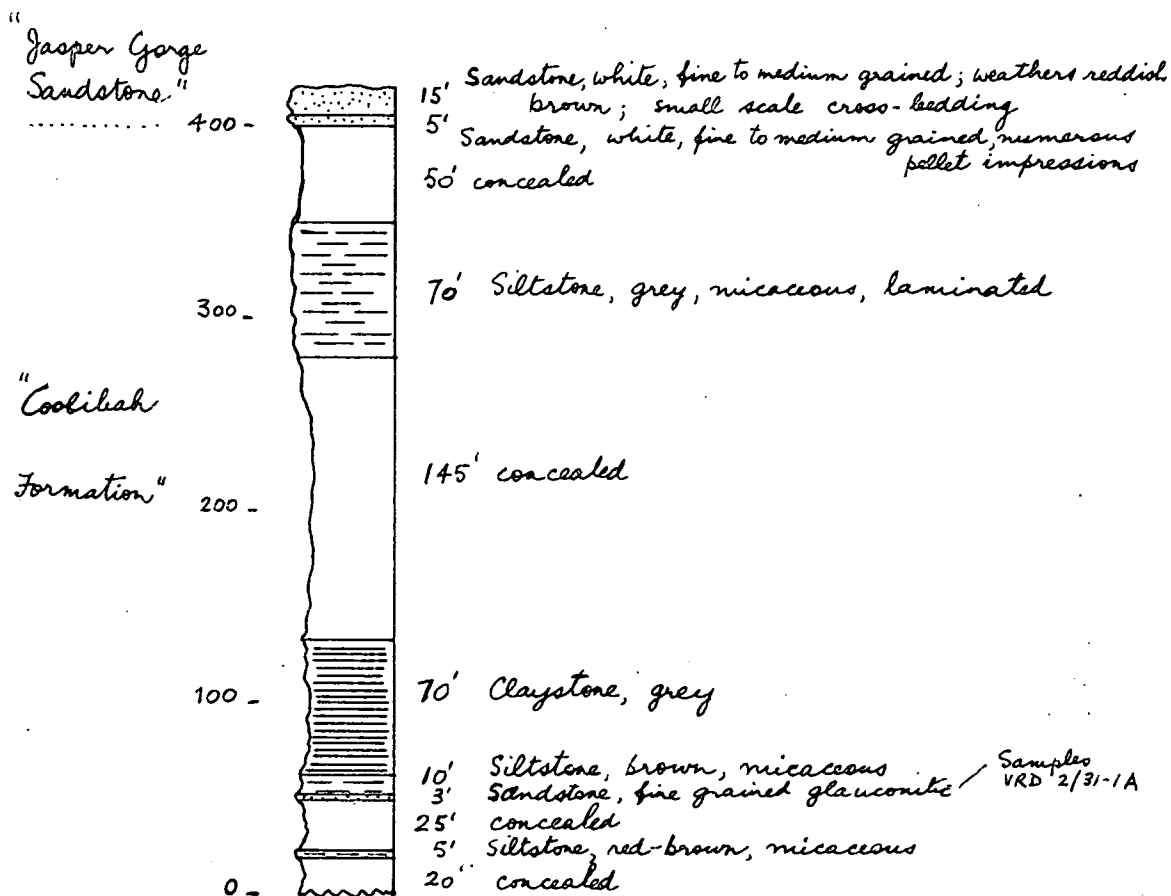 "Jasper Gorge
Sandstone"
400 -
15' Sandstone, white, fine to medium grained; weathers reddish
brown; small scale cross-bedding
5' Sandstone, white, fine to medium grained, numerous
pellet impressions
50' concealed
70' Siltstone, grey, micaceous, laminated
300 -
"Coobibah
Formation"
145' concealed
200 -
100 -
70' Claystone, grey
10' Siltstone, brown, micaceous
3' Sandstone, fine grained glauconitic
Samples
VRD 2/31-1A
25' concealed
5' Siltstone, red-brown, micaceous
20' concealed
0 -